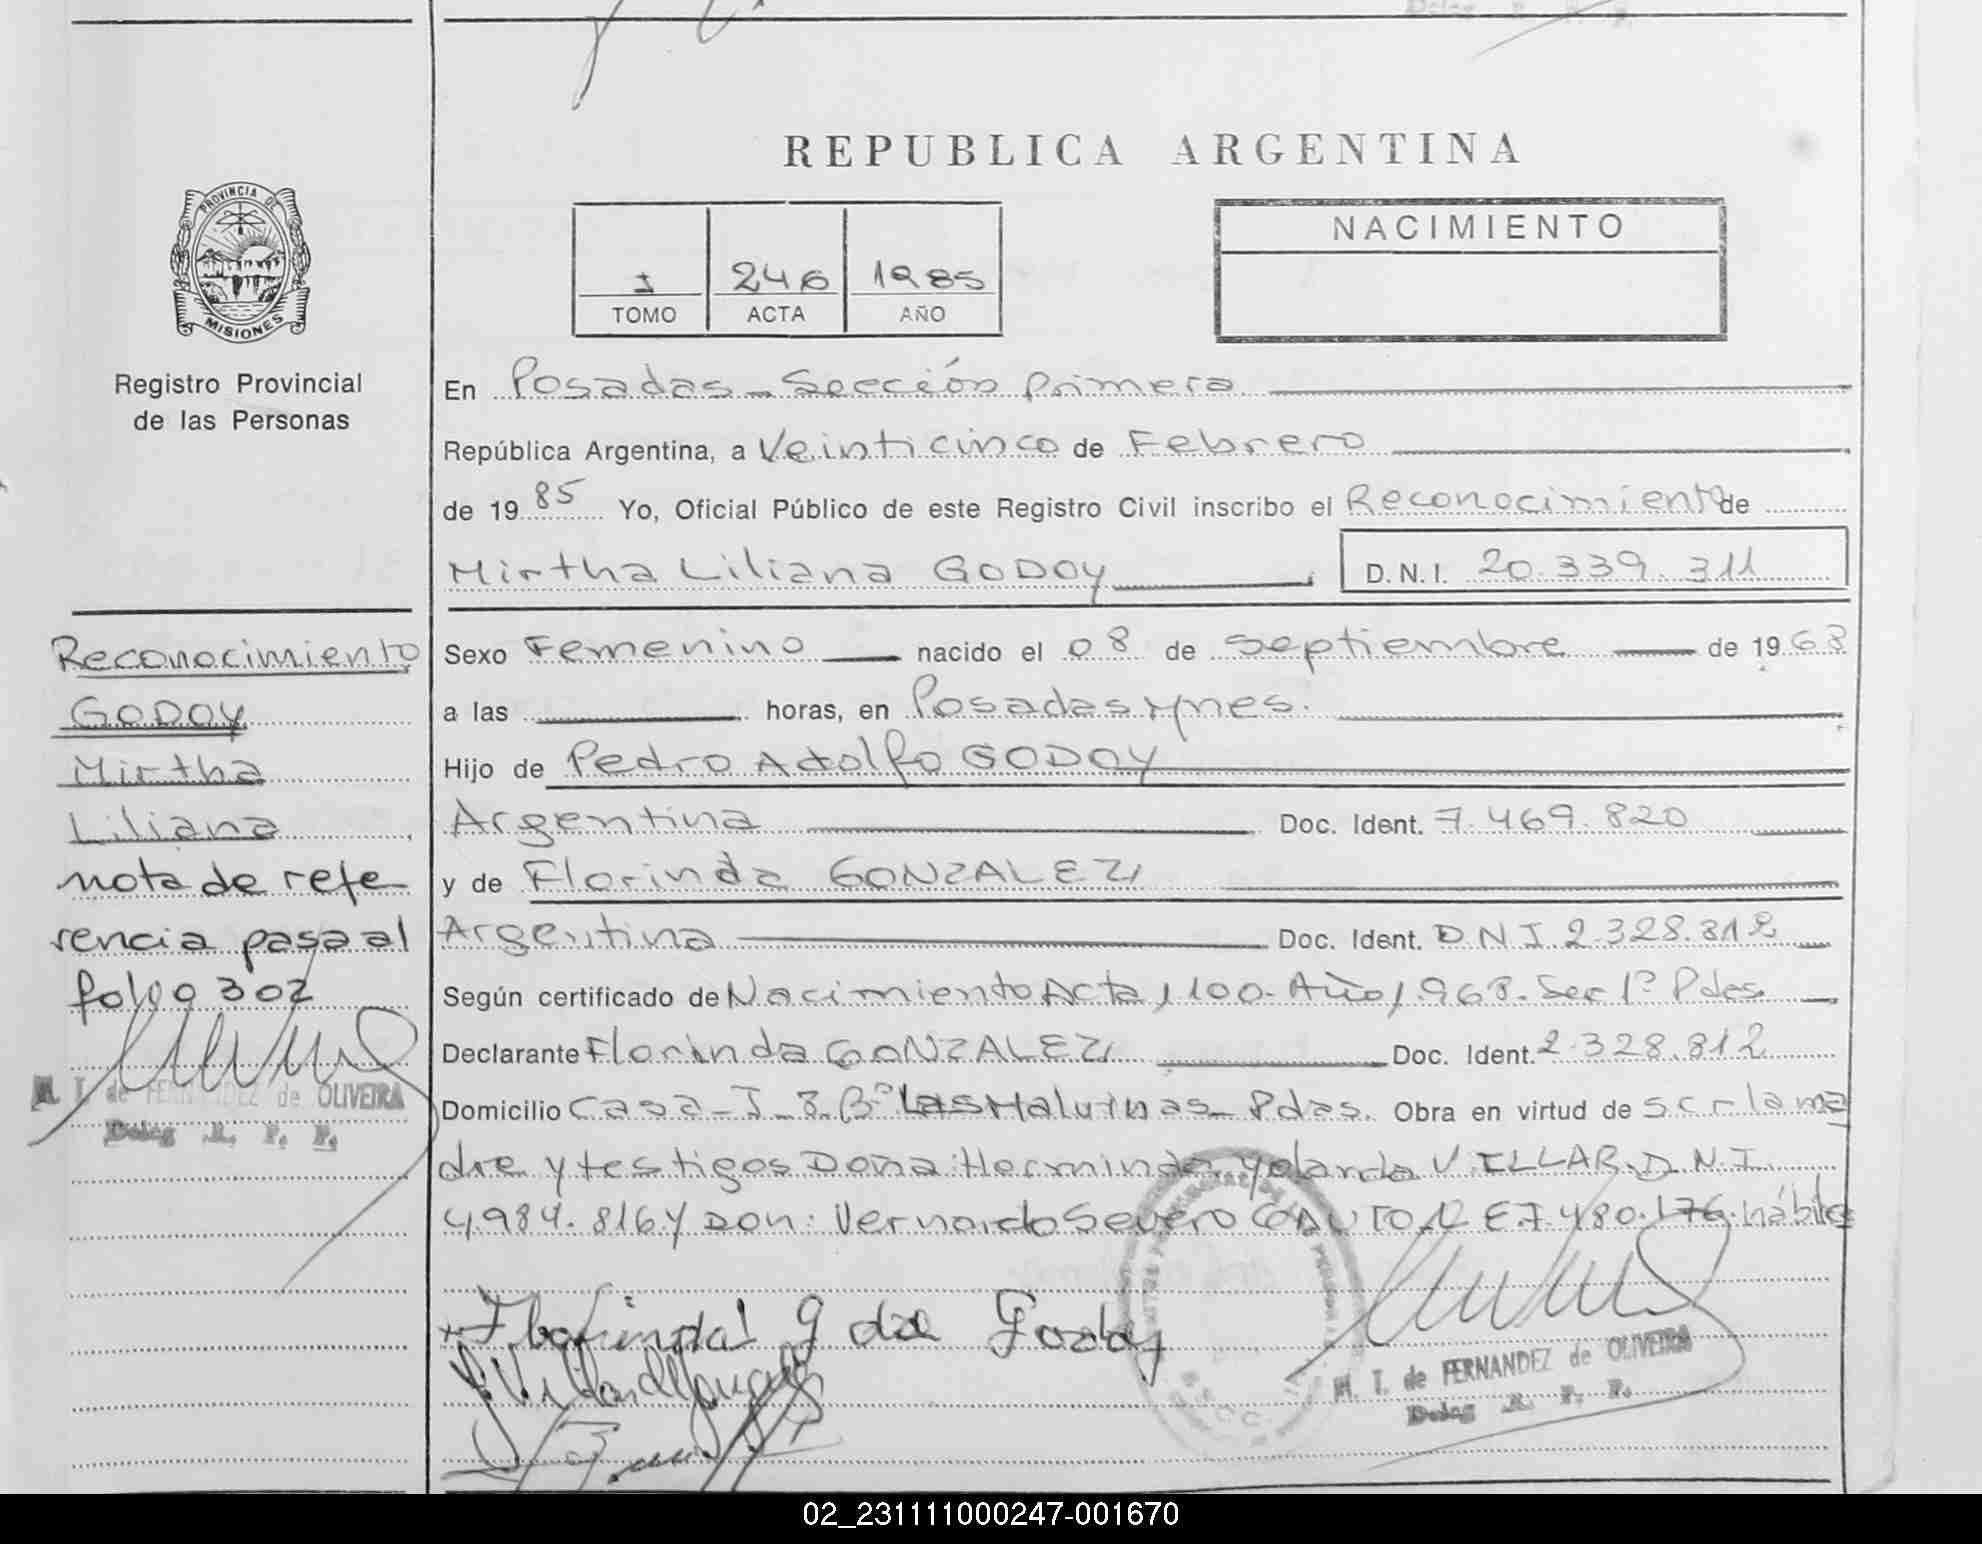 REPUBLICA ARGENTINA
PROVINCIA DE
MISIONES
Registro Provincial
de las Personas
I 246 1985
TOMO ACTA AÑO
NACIMIENTO
En Posadas - Sección Primera
República Argentina, a Veinticinco de Febrero
de 19 85 Yo, Oficial Público de este Registro Civil inscribo el Reconocimiento de
Mirtha Liliana GODOY D.N.I. 20.339.311
Sexo Femenino nacido el 08 de septiembre de 19 68
a las horas, en Posadas Mnes.
Hijo de Pedro Adolfo GODOY
Argentina Doc. Ident. 7.469.820
y de Florinda GONZALEZ
Argentina Doc. Ident. D N I 2.328.812
Según certificado de Nacimiento Acta 1100 - Año 1.968. Sec 1° Pdas
Declarante Florinda GONZALEZ Doc. Ident. 2.328.812
Domicilio Casa - I - 3. B° Las Malvinas - Pdas. Obra en virtud de ser la ma
dre y testigos Doña: Herminda Yolanda VILLAR. D.N.I.
4.984.816 Y Don: Vernardo Severo 7.480.176 hábiles
Reconocimiento
GODOY
Mirtha
Liliana
nota de refe
rencia pasa al
folio 302
M. T. de FERNANDEZ de OLIVEIRA
Deleg R. P. P.
Florinda G de Godoy
M. T. de FERNANDEZ de OLIVEIRA
Deleg R. P. P.
02_231111000247-001670